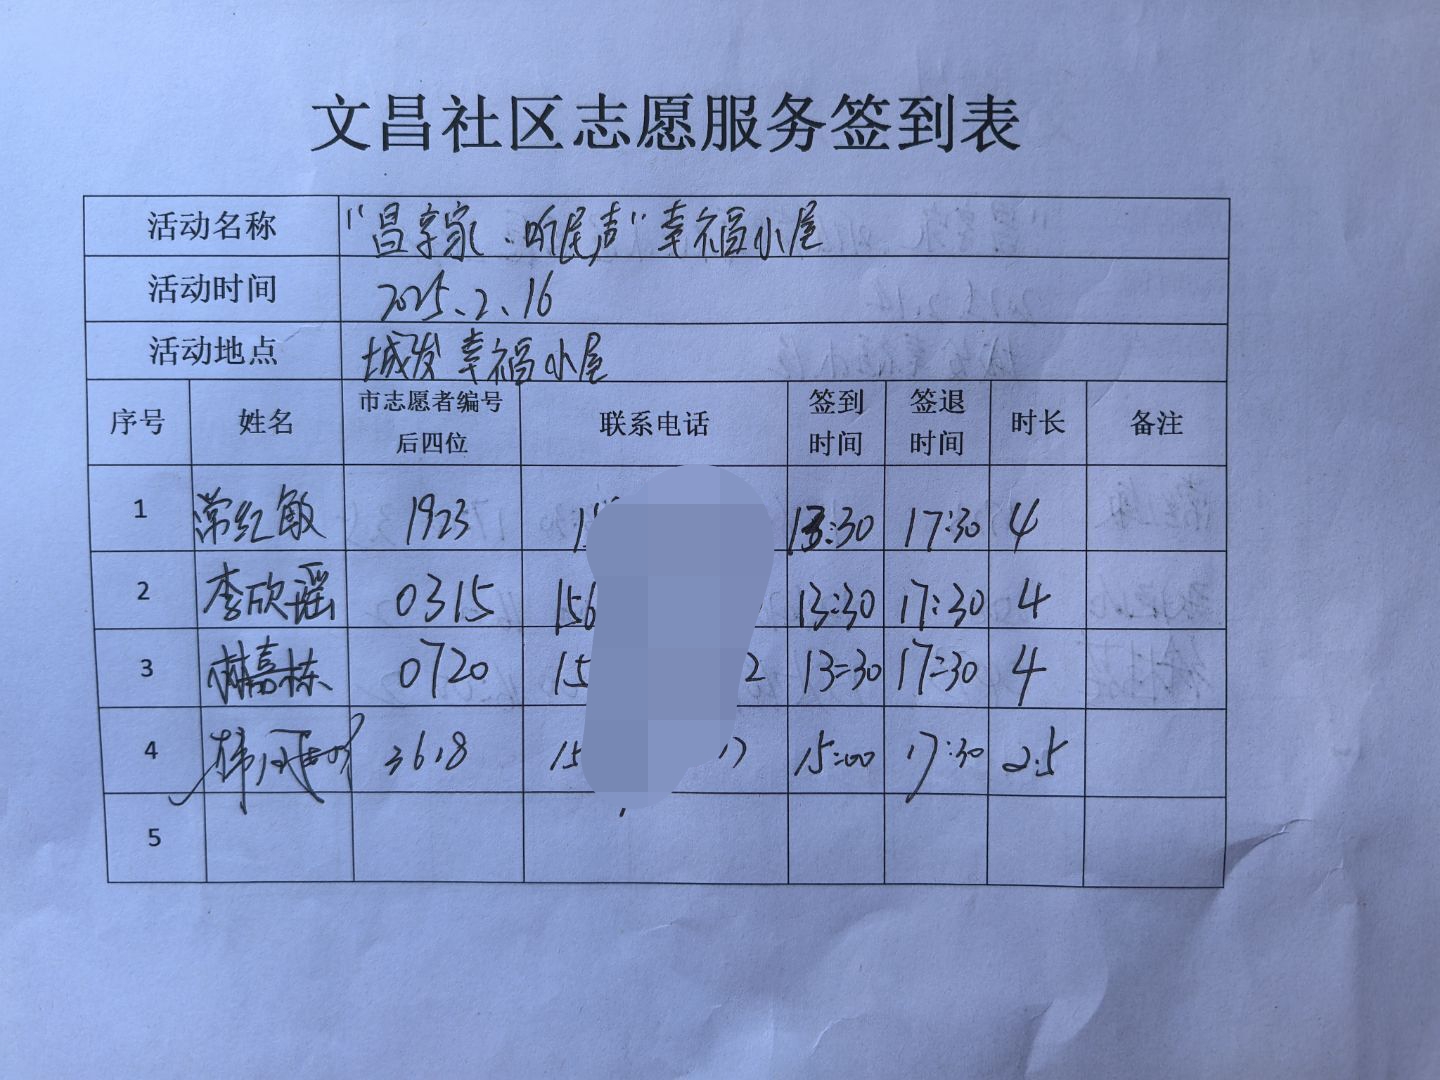 文昌社区志愿服务签到表
活动名称 "昌享家·听民声"幸福小屋
活动时间 2025.2.16
活动地点 城发幸福小屋
序号 姓名 市志愿者编号后四位 联系电话 签到时间 签退时间 时长 备注
1 常红敏 1923 13:30 17:30 4
2 李欣谣 0315 156 13:30 17:30 4
3 林嘉栋 0720 15 2 13:30 17:30 4
4 3618 15 17 15:00 17:30 2.5
5